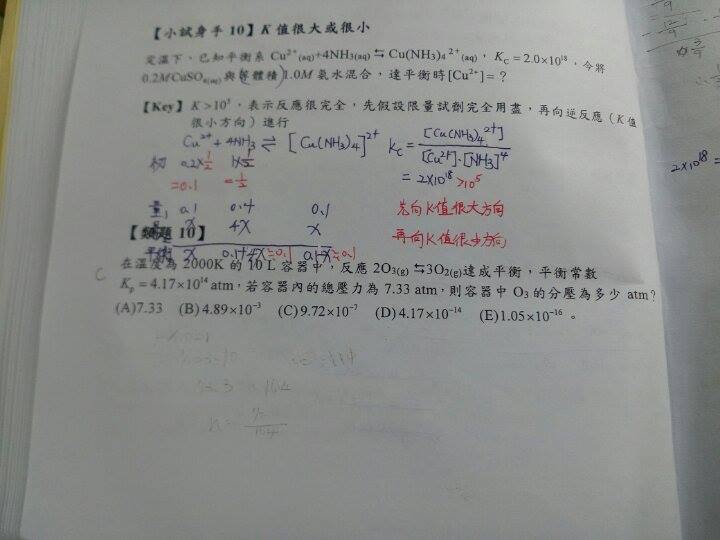 【小試身手 10】K 值很大或很小
定溫下，已知平衡系 Cu²⁺(aq)+4NH₃(aq) ⇆ Cu(NH₃)₄²⁺(aq)，K_C = 2.0×10¹⁸，令將
0.2M CuSO₄(aq) 與(等體積)1.0M 氨水混合，達平衡時[Cu²⁺]=？
【Key】K >10⁵，表示反應很完全，先假設限量試劑完全用盡，再向逆反應（K 值
很小方向）進行
Cu²⁺ + 4NH₃ ⇌ [Cu(NH₃)₄]²⁺ Kc = [Cu(NH₃)₄²⁺] / [Cu²⁺]·[NH₃]⁴
初 0.2×1/2 1×1/2 = 2×10¹⁸ >10⁵
=0.1 =1/2
0.1 0.4 0.1 先向K值很大方向
x 4x x 再向K值很小方向
平衡 x 0.1+4x≒0.1 0.1-x≒0.1
【類題 10】
C 在溫度為 2000K 的 10 L 容器中，反應 2O₃(g) ⇆3O₂(g)達成平衡，平衡常數
Kp = 4.17×10¹⁴ atm，若容器內的總壓力為 7.33 atm，則容器中 O₃ 的分壓為多少 atm？
(A)7.33 (B) 4.89×10⁻³ (C) 9.72×10⁻⁷ (D) 4.17×10⁻¹⁴ (E)1.05×10⁻¹⁶ 。
2×10¹⁸ =